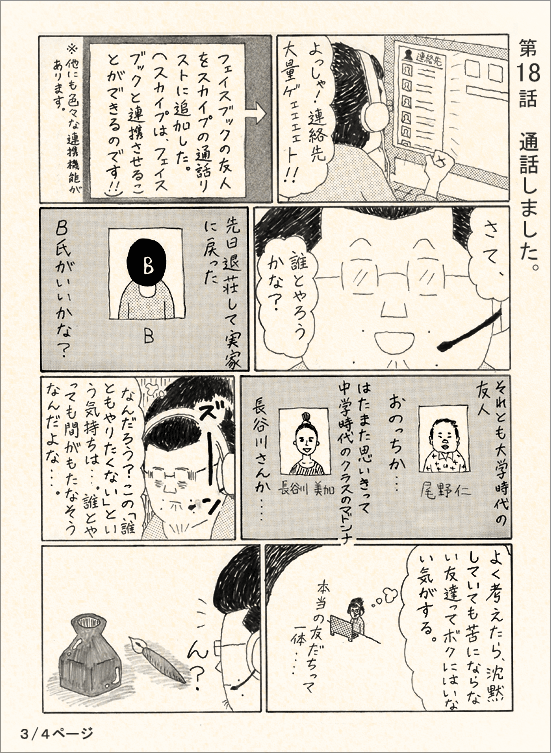 第18話　通話しました。
連絡先
よっしゃ！連絡先
大量ゲェェェェト！！
フェイスブックの友人
をスカイプの通話リ
ストに追加した。
（スカイプは、フェイス
ブックと連携させるこ
とができるのです！！）
※他にも色々な連携機能が
あります。
さて、
誰とやろう
かな？
先日退荘して実家
に戻った
B
B
B氏がいいかな？
それとも大学時代の
友人
おのっちか…
尾野仁
はたまた思いきって
中学時代のクラスのマドンナ
長谷川さんか…
長谷川 美加
ズーン
なんだろう？この「誰
ともやりたくない」とい
う気持ちは…誰とや
っても間がもたなそう
なんだよな…。
よく考えたら、沈黙
していても苦にならな
い友達ってボクにはいな
い気がする。
本当の友だちって
一体…
ん？
3/4ページ